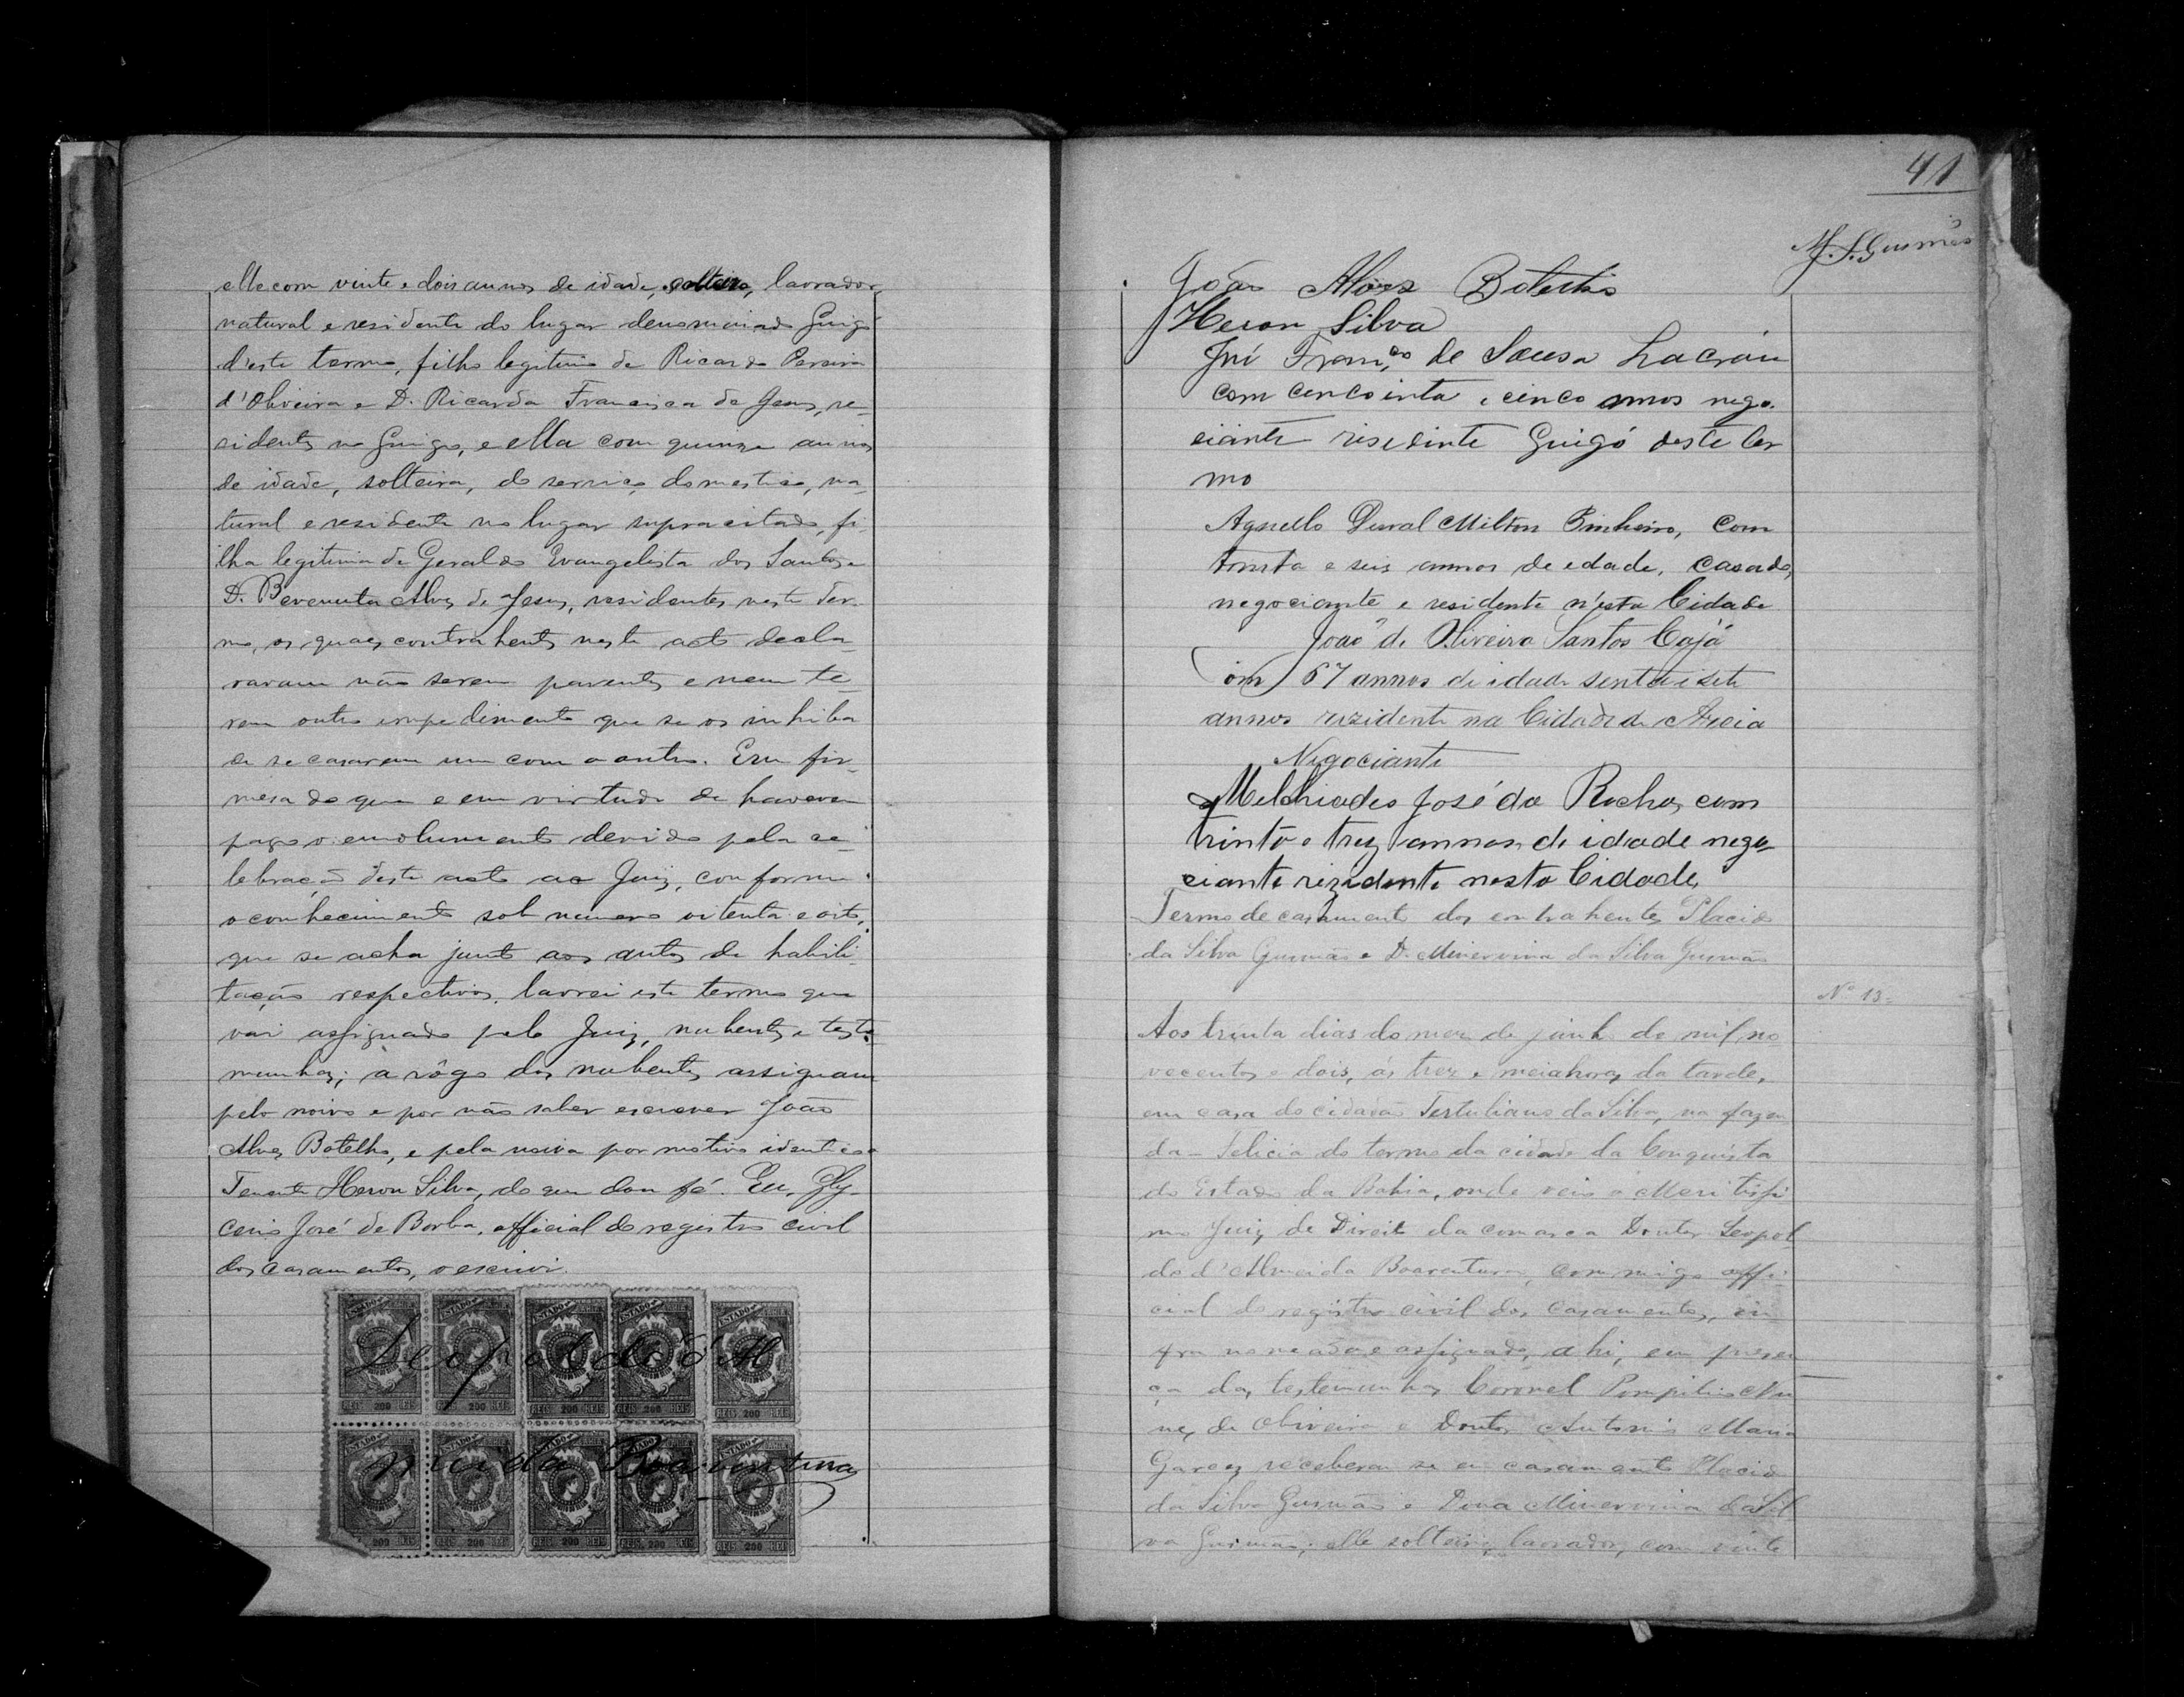 elle com vinte e dois annos de idade, solteiro, lavrador,
natural e residente do lugar denominado Guigó
d'este termo, filho legitimo de Ricardo Pereira
d'Oliveira e D. Ricarda Francisca de Jesus, re-
sidentes no Guigó, e ella com quinze annos
de idade, solteira, do serviço domestico, na-
tural e residente no lugar supracitado, fi-
lha legitima de Geraldo Evangelista dos Santos e
D. Bevenuta Alves de Jesus, residentes neste ter-
mo, os quaes contrahentes neste acto decla-
raram não serem parentes e nem te-
rem outro impedimento que se os inhiba
de se casarem um com o outro. Em fir-
mesa do que e em virtude de haverem
pago o emolumento devido pela ce-
lebração deste acto ao Juiz, conforme
o conhecimento sob numero oitenta e oito,
que se acha junto aos autos de habili-
tação respectivos, lavrei este termo que
vai assignado pelo Juiz, nubentes e teste-
munhas; a rôgo dos nubentes assignam
pelo noivo e por não saber escrever João
Alves Botelho, e pela noiva por motivo identico o
Tenente Heron Silva, do que dou fé. Eu, Gly-
cerio José de Borba, official do registro civil
dos casamentos, o escrevi.
ESTADO
REIS 200 REIS
Leopoldo d'Al
meida Boaventura
41
M. S. Gusmão
João Alves Botelho
Heron Silva
José Fran.co de Sousa
com cencointa e cinco annos nego-
ciante risidinte Guigó deste ter
mo
Agnello Durval Milton Pinheiro, com
trinta e seis annos de edade, casado,
negociante e residente n'esta Cidade
João de Oliveira Santos Cajá
com 67 annos de idade senta i sete
annos rezidente na Cidade de Areia
Negociante
Melchiades José da Rocha, com
trinta e trez annos de idade nego-
ciante rezidente nesta Cidade,
Termo de casamento dos contrahentes Placido
da Silva Gusmão e D. Minervina da Silva Gusmão
Nº 13.
Aos trinta dias do mez de junho de mil no-
vecentos e dois, ás trez e meia horas da tarde,
em casa do cidadão Tertuliano da Silva, na fazen
da - Felicia do termo da cidade da Conquista
do Estado da Bahia, onde veio o Meritissi
mo Juiz de Direito da comarca Doutor Leopol
do d'Almeida Boaventura, commigo offi-
cial do registro civil dos casamentos, in
fra nomeado e assignado, ahi, em presen
ça das testemunhas Coronel Pompilio Nu
nes de Oliveira e Doutor Antonio Maria
Garcez receberam se em casamento Placido
da Silva Gusmão e Dona Minervina da Sil
va Gusmão; elle solteiro, lavrador, com vinte